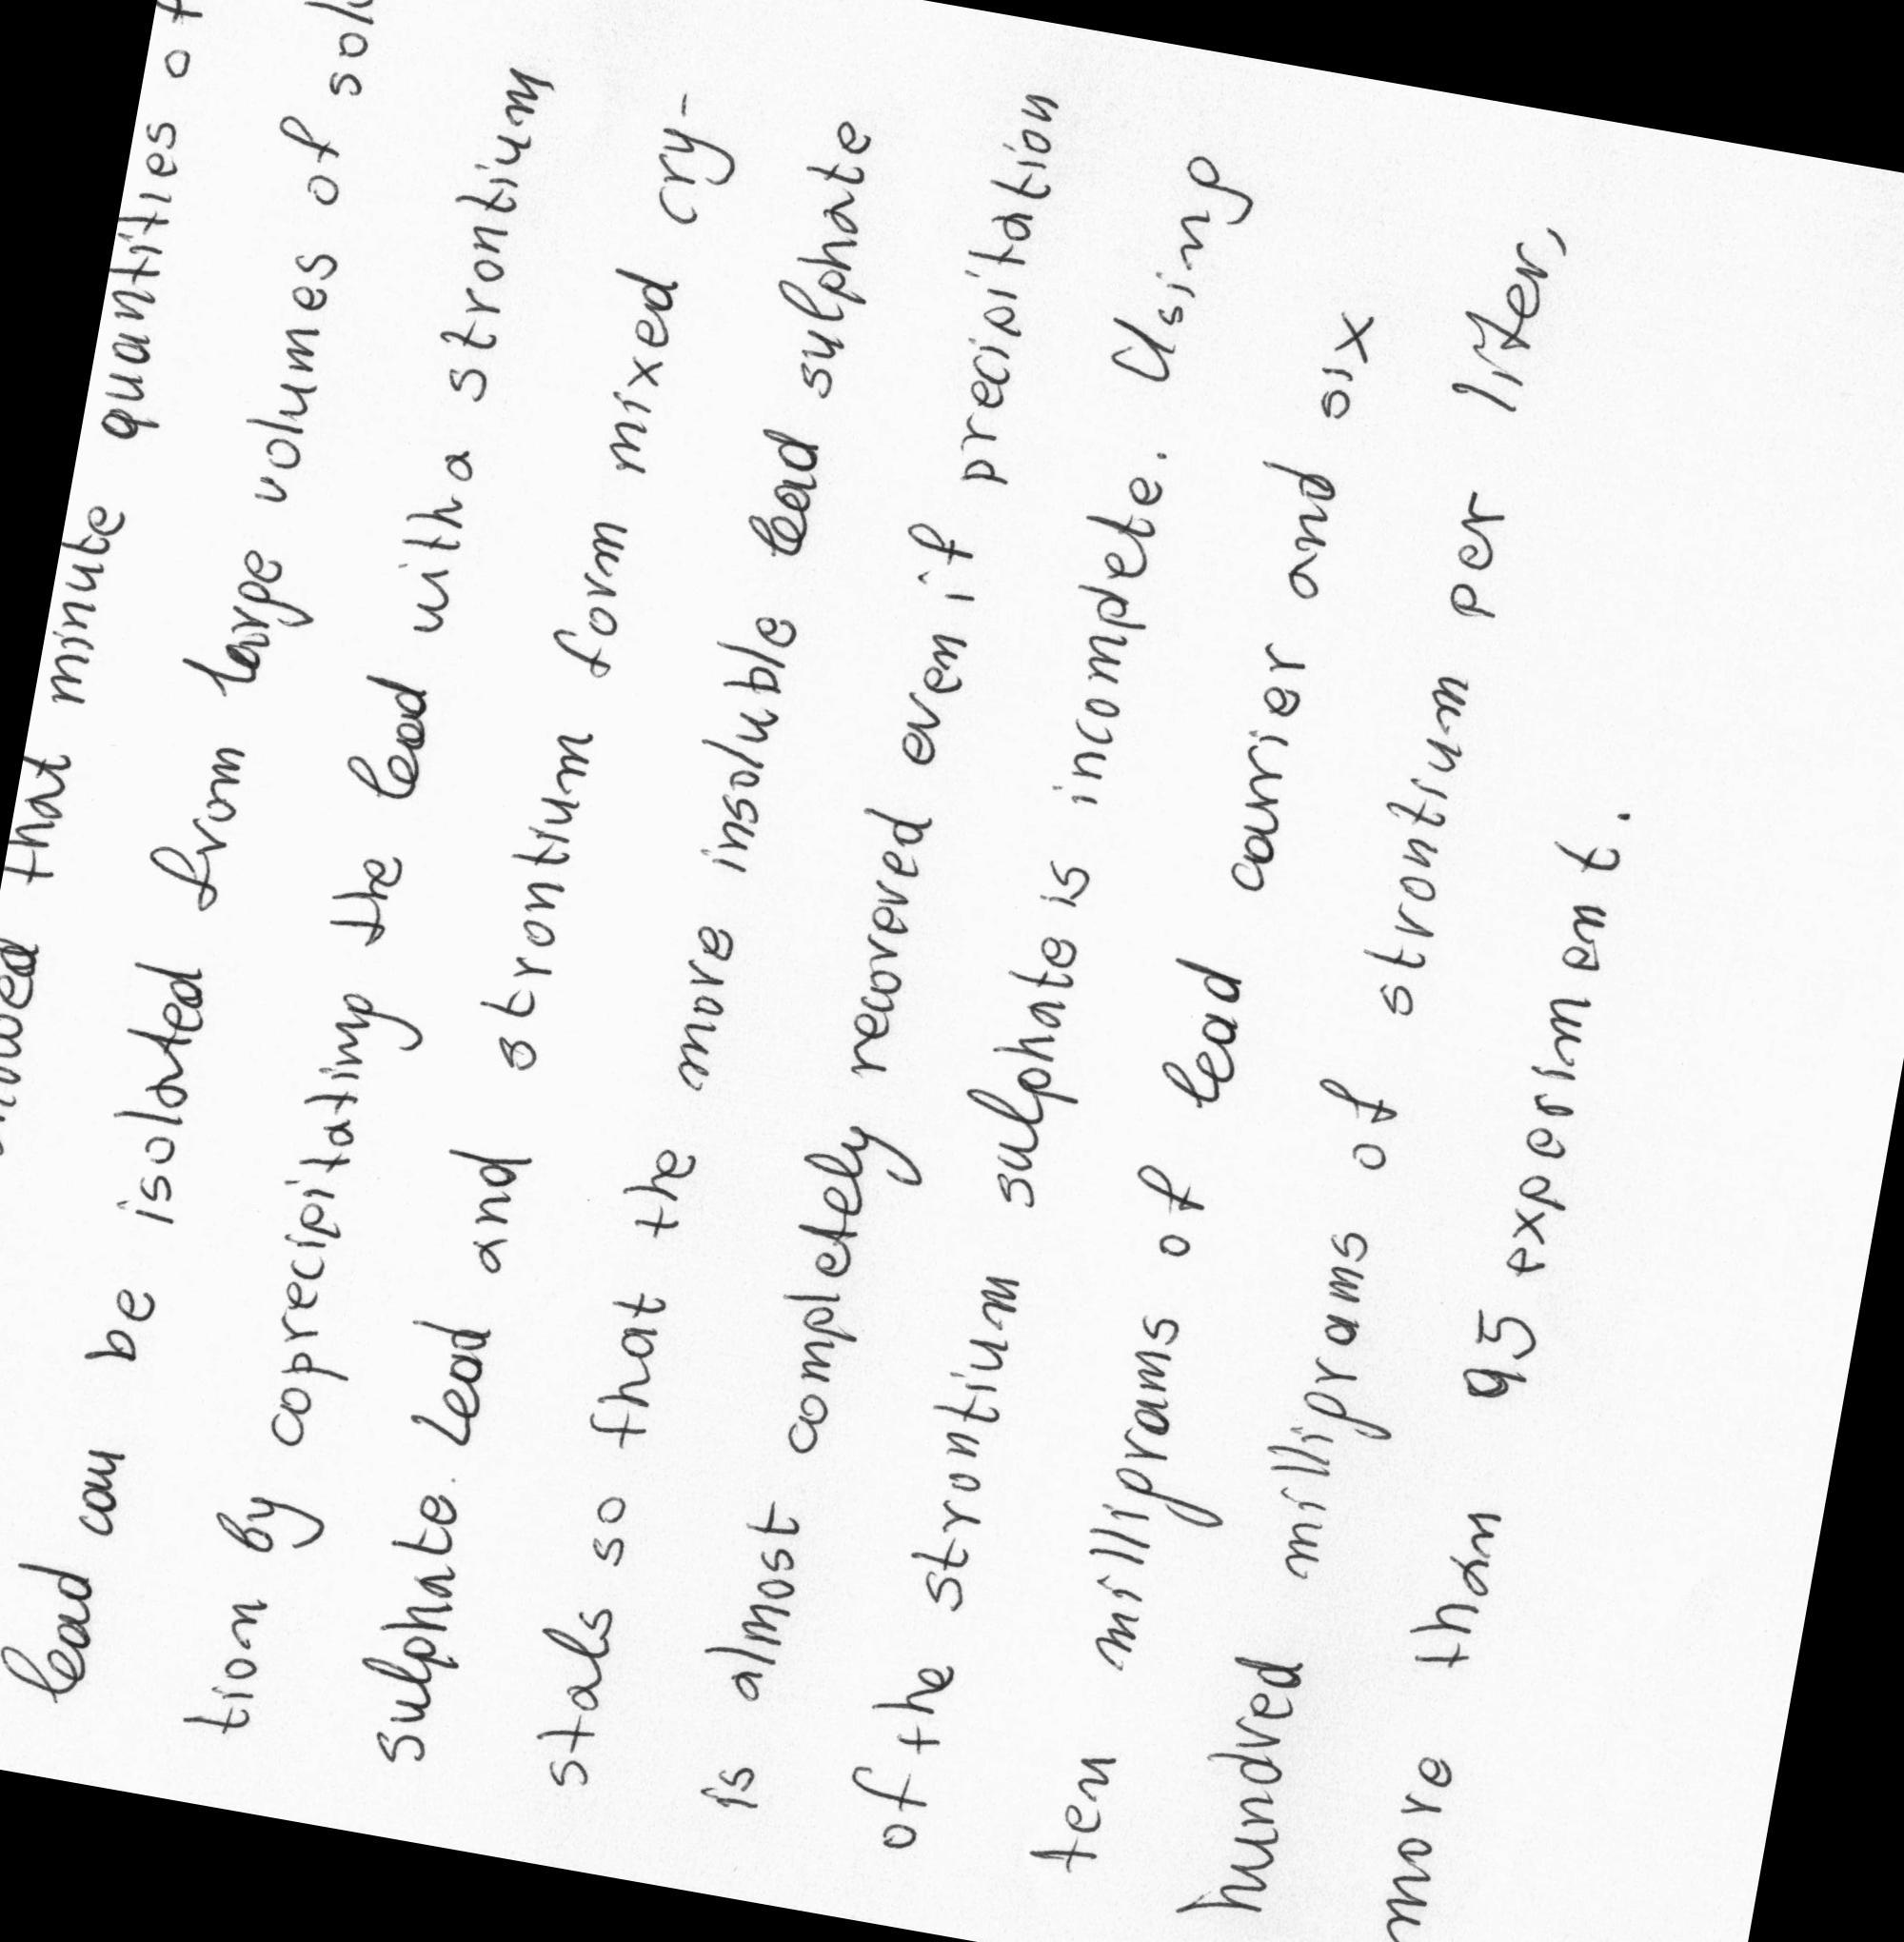 that minute quantities of
lead can be isolated from large volumes of
tion by coprecipitating the lead with a strontium
sulphate. Lead and strontium form mixed cry-
stals so that the more insoluble lead sulphate
is almost completely recovered even if precipitation
of the strontium sulphate is incomplete. Using
ten milligrams of lead carrier and six
hundred milligrams of strontium per liter,
more than 95 experiment.